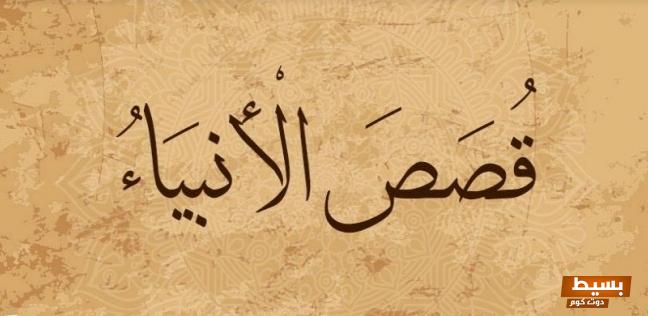 قُصَصَ الْأنبيَاءُ
بسيط
دوت كوم